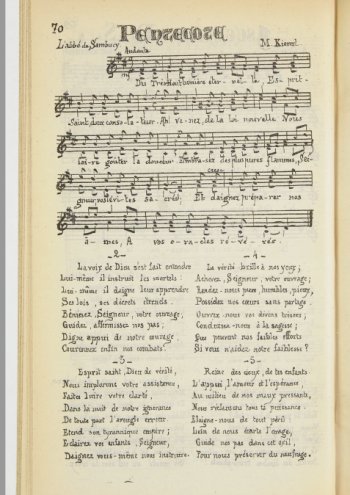 70 PENTECOTE
L'abbé de Sambucy M. Kierel
Andante
Du Très-Haut lumière éter-nel-le Es-prit-
Saint doux conso-la-teur. Ah! ve-nez, de la loi nouvelle Nous
faire goûter la douceur. des plus pures flammes, Sei-
gneur vos Et daignez prépa-rer nos
â-mes, A vos o-ra-cles ré-vé-rés.
-2-
La voix de Dieu s'est fait entendre
Lui-même il instruit les mortels:
Lui-même il daigne leur apprendre
Ses lois, ses décrets éternels.
Bénissez, Seigneur, votre ouvrage,
Guidez, affermissez nos pas;
Digne appui de notre courage
Couronnez enfin nos combats.
-3-
Esprit saint, Dieu de vérité,
Nous implorons votre assistance,
Faites luire votre clarté,
Dans la nuit de notre ignorance
De toute part l'aveugle erreur
Etend son tyrannique empire;
Eclairez vos enfants, Seigneur,
Daignez vous-même nous instruire.
-4-
La vérité brille à nos yeux;
Achevez, Seigneur, votre ouvrage;
Rendez-nous purs, humbles, pieux,
Possédez nos cœurs sans partage.
Ouvrez-nous vos divins trésors;
Conduisez-nous à la sagesse;
Que peuvent nos faibles efforts
Si vous n'aidez notre faiblesse?
-5-
Reine des cieux, de tes enfants
L'appui, l'amour et l'espérance,
Au milieu de nos maux pressants,
Nous réclamons tous ta puissance.
Eloigne-nous de tout péril
Loin de nous écarte l'orage,
Guide nos pas dans cet exil,
Pour nous préserver du naufrage.